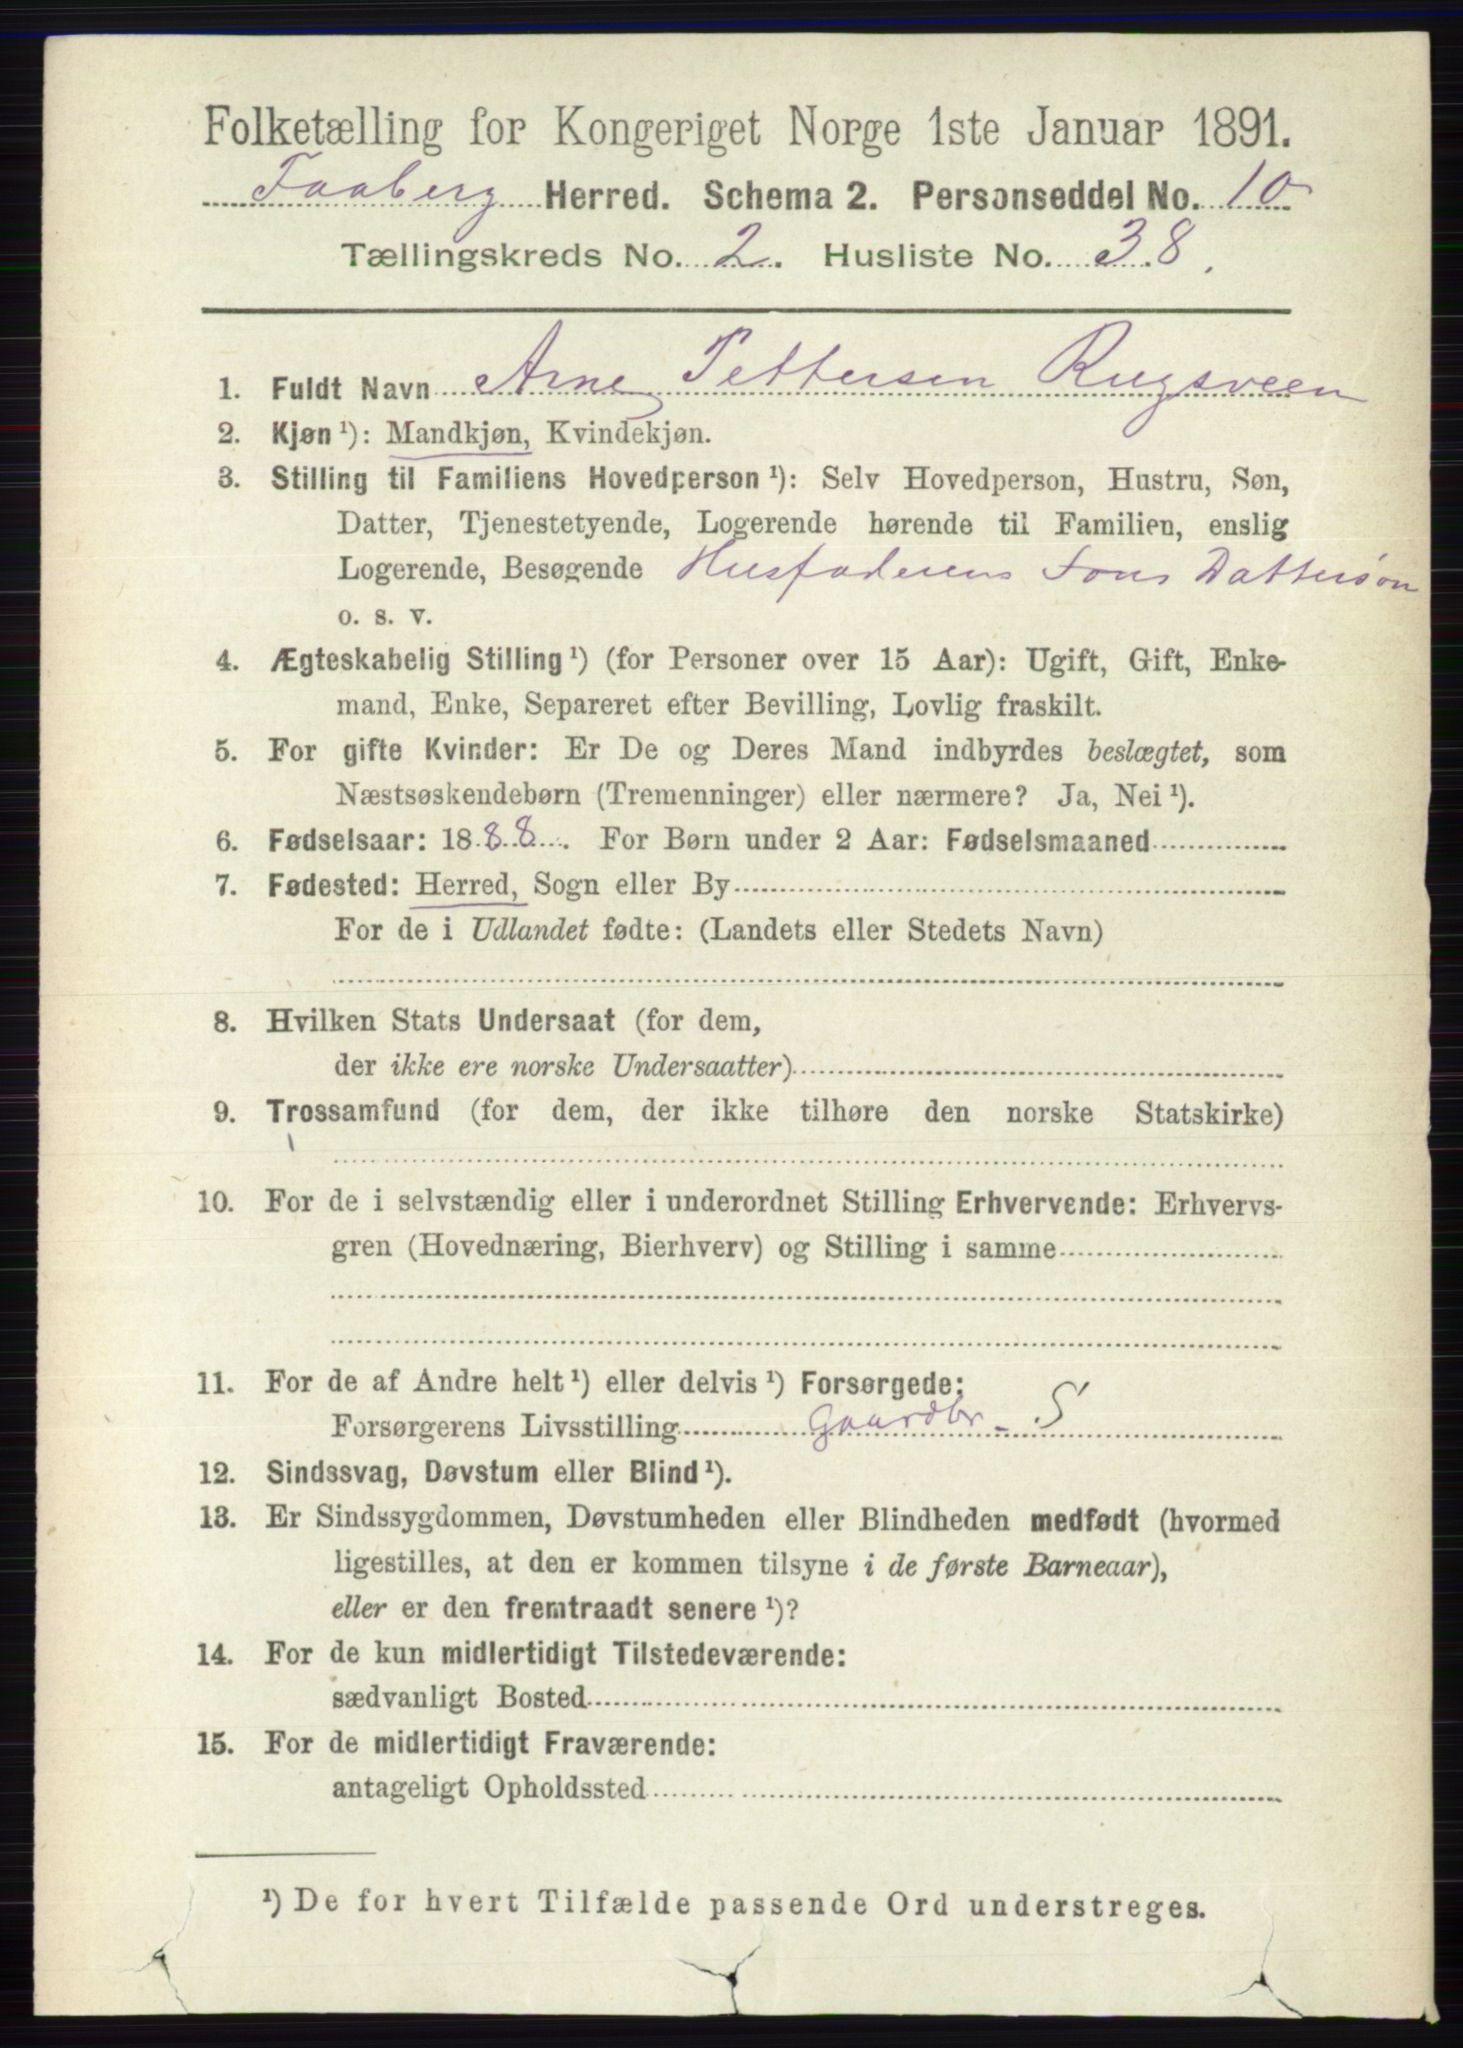 Folketælling for Kongeriget Norge 1ste Januar 1891.
Faaberg Herred. Schema 2. Personseddel No. 10
Tællingskreds No. 2. Husliste No. 38.
1. Fuldt Navn Arne Pettersen Rugsveen
2. Kjøn¹): Mandkjøn, Kvindekjøn.
3. Stilling til Familiens Hovedperson¹): Selv Hovedperson, Hustru, Søn,
Datter, Tjenestetyende, Logerende hørende til Familien, enslig
Logerende, Besøgende Husfaderens Søns Dattersøn
o. s. v.
4. Ægteskabelig Stilling¹) (for Personer over 15 Aar): Ugift, Gift, Enke-
mand, Enke, Separeret efter Bevilling, Lovlig fraskilt.
5. For gifte Kvinder: Er De og Deres Mand indbyrdes beslægtet, som
Næstsøskendebørn (Tremenninger) eller nærmere? Ja, Nei¹).
6. Fødselsaar: 1888. For Børn under 2 Aar: Fødselsmaaned
7. Fødested: Herred, Sogn eller By
For de i Udlandet fødte: (Landets eller Stedets Navn)
8. Hvilken Stats Undersaat (for dem,
der ikke ere norske Undersaatter)
9. Trossamfund (for dem, der ikke tilhøre den norske Statskirke)
10. For de i selvstændig eller i underordnet Stilling Erhvervende: Erhvervs-
gren (Hovednæring, Bierhverv) og Stilling i samme
11. For de af Andre helt¹) eller delvis¹) Forsørgede:
Forsørgerens Livsstilling Gaardbr. S
12. Sindssvag, Døvstum eller Blind¹).
13. Er Sindssygdommen, Døvstumheden eller Blindheden medfødt (hvormed
ligestilles, at den er kommen tilsyne i de første Barneaar),
eller er den fremtraadt senere¹)?
14. For de kun midlertidigt Tilstedeværende:
sædvanligt Bosted
15. For de midlertidigt Fraværende:
antageligt Opholdssted
¹) De for hvert Tilfælde passende Ord understreges.